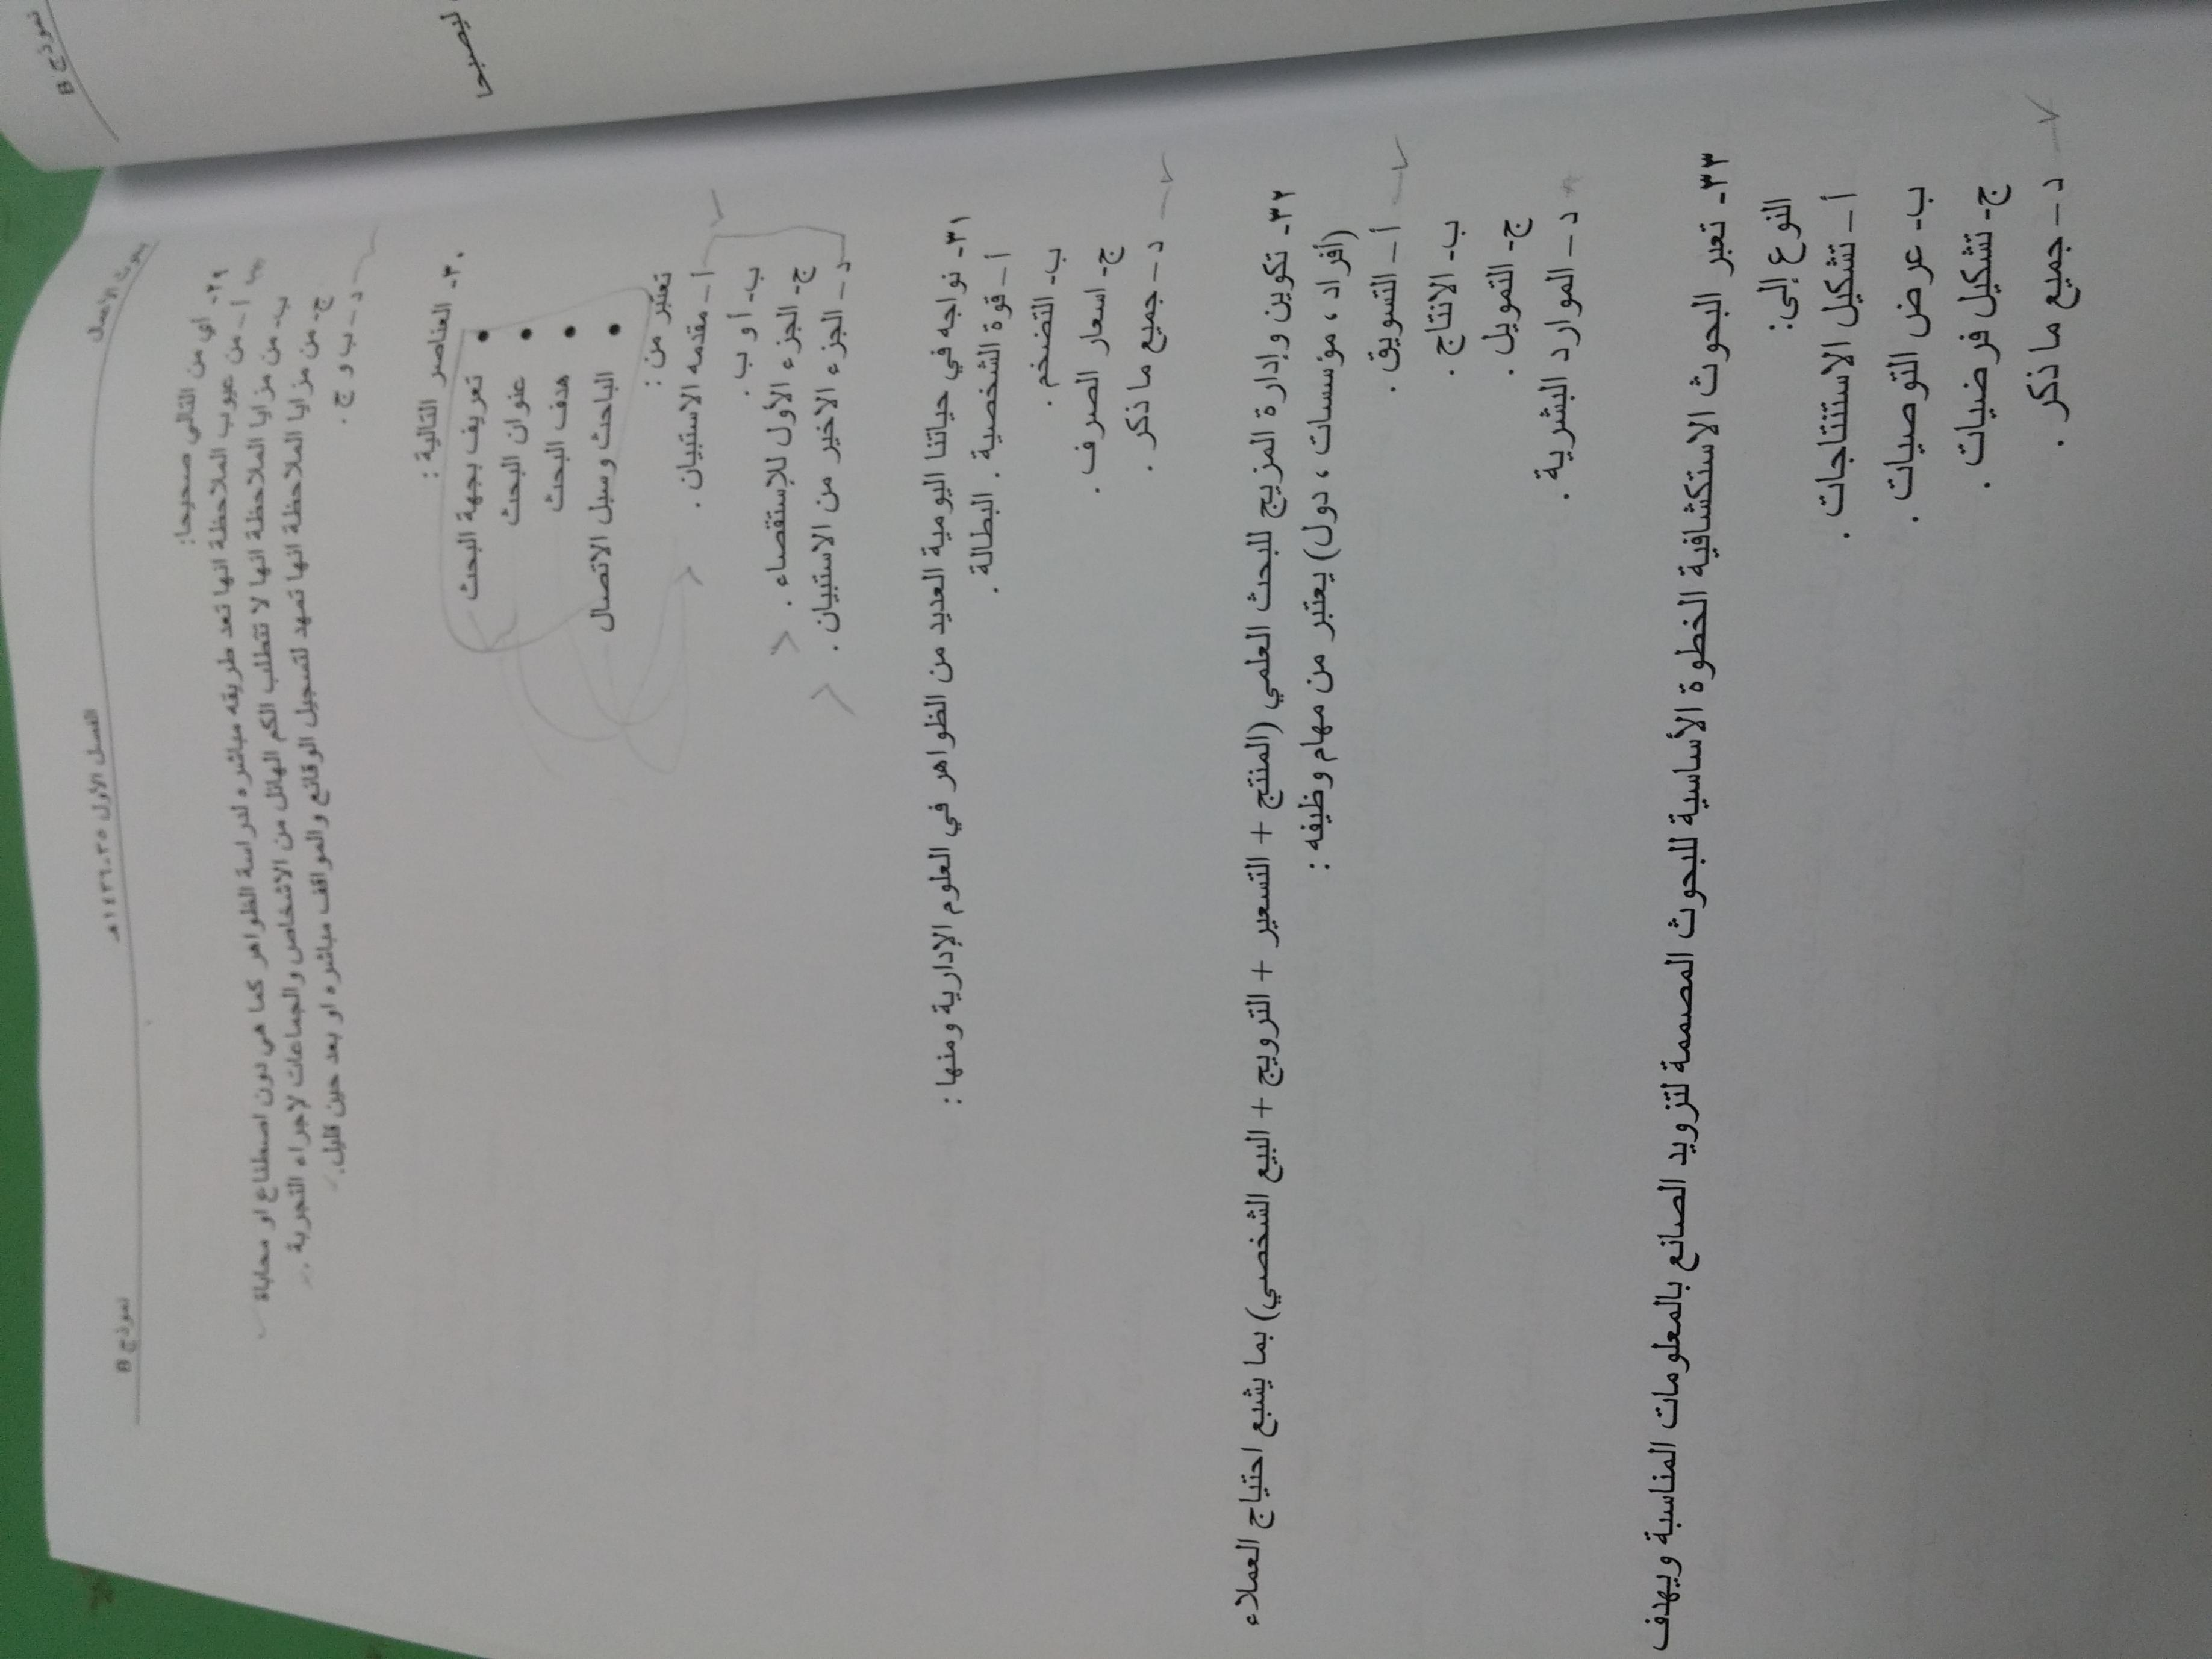 بحوث الأعمال
الفصل الأول ٣٥-١٤٣٦هـ
نموذج B
٢٩- أي من التالي صحيحا:
أ – من عيوب الملاحظة انها تعد طريقه مباشره لدراسة الظواهر كما هي دون اصطناع او محاباة
ب- من مزايا الملاحظة انها لا تتطلب الكم الهائل من الاشخاص والجماعات لإجراء التجربة .
ج- من مزايا الملاحظة انها تمهد لتسجيل الوقائع والمواقف مباشره او بعد حين قليل.
د – ب و ج .
٣٠- العناصر التالية :
• تعريف بجهة البحث
• عنوان البحث
• هدف البحث
• الباحث وسبل الاتصال
تعتبر من :
أ – مقدمه الاستبيان .
ب- أ و ب .
ج- الجزء الأول للإستقصاء .
د – الجزء الاخير من الاستبيان .
٣١- نواجه في حياتنا اليومية العديد من الظواهر في العلوم الإدارية ومنها :
أ – قوة الشخصية . البطالة .
ب- التضخم .
ج- اسعار الصرف .
د – جميع ما ذكر .
٣٢- تكوين وإدارة المزيج للبحث العلمي (المنتج + التسعير + الترويج + البيع الشخصي) بما يشبع احتياج العملاء
(أفراد ، مؤسسات ، دول) يعتبر من مهام وظيفه :
أ – التسويق .
ب- الانتاج .
ج- التمويل .
د – الموارد البشرية .
٣٣- تعبر البحوث الاستكشافية الخطوة الأساسية للبحوث المصممة لتزويد الصانع بالمعلومات المناسبة ويهدف
النوع إلى:
أ – تشكيل الاستنتاجات .
ب- عرض التوصيات .
ج- تشكيل فرضيات .
د – جميع ما ذكر .
نموذج B